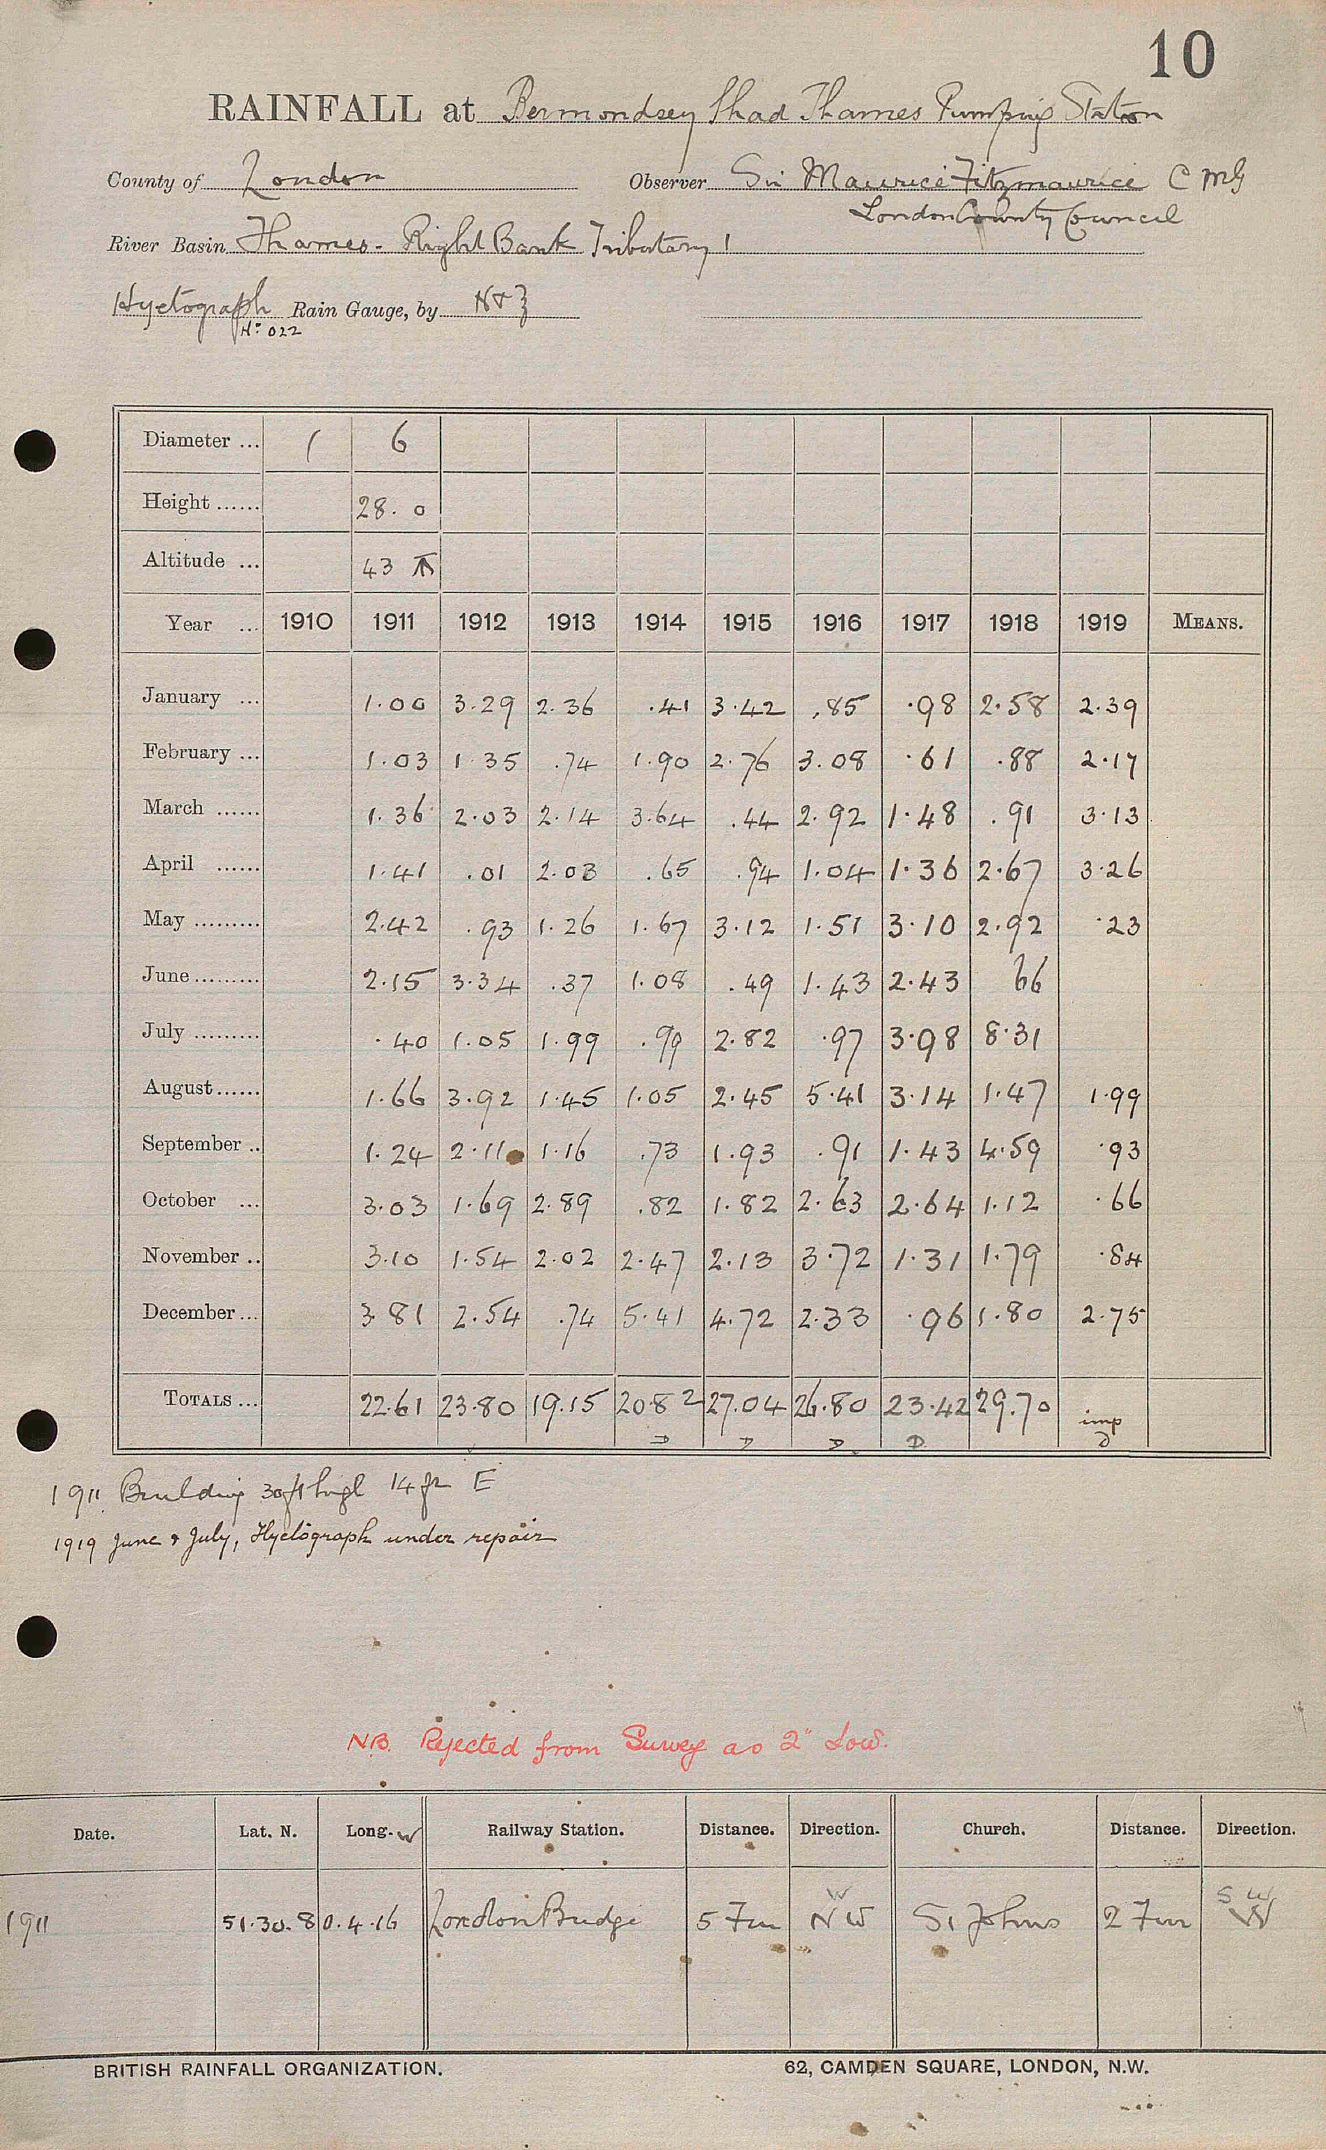 10
RAINFALL at Bermondsey Shad Thames Pumping Station
County of London Observer Sir Maurice Fitzmaurice C M G
London County Council
River Basin Thames - Right Bank Tributary 1
Hyetograph Rain Gauge, by N & Z
No 022
Diameter ... 1 6
Height ...... 28. 0
Altitude ... 43
Year ... 1910 1911 1912 1913 1914 1915 1916 1917 1918 1919 MEANS.
January ... 1.00 3.29 2.36 .41 3.42 .85 .98 2.58 2.39
February ... 1.03 1.35 .74 1.90 2.76 3.08 .61 .88 2.17
March ...... 1.36 2.03 2.14 3.64 .44 2.92 1.48 .91 3.13
April ...... 1.41 .01 2.03 .65 .94 1.04 1.36 2.67 3.26
May ......... 2.42 .93 1.26 1.67 3.12 1.51 3.10 2.92 .23
June ......... 2.15 3.34 .37 1.08 .49 1.43 2.43 66
July ......... .40 1.05 1.99 .99 2.82 .97 3.98 8.31
August ...... 1.66 3.92 1.45 1.05 2.45 5.41 3.14 1.47 1.99
September .. 1.24 2.11 1.16 .73 1.93 .91 1.43 4.59 .93
October ... 3.03 1.69 2.89 .82 1.82 2.63 2.64 1.12 .66
November .. 3.10 1.54 2.02 2.47 2.13 3.72 1.31 1.79 .84
December ... 3.81 2.54 .74 5.41 4.72 2.33 .96 1.80 2.75
TOTALS ... 22.61 23.80 19.15 20.82 27.04 26.80 23.42 29.70 imp
D D D D D
1911 Building 30ft high 14 ft E
1919 June & July, Hyetograph under repair
N.B. Rejected from Survey as 2" Low.
Date. Lat. N. Long. W Railway Station. Distance. Direction. Church. Distance. Direction.
1911 51.30.8 0.4.16 London Bridge 5 Fur N W St Johns 2 Fur S W
BRITISH RAINFALL ORGANIZATION. 62, CAMDEN SQUARE, LONDON, N.W.